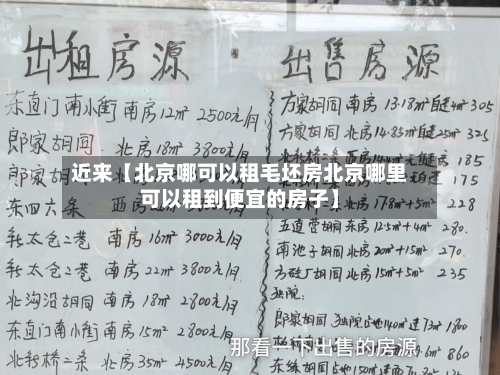 出租房源
东直门南小街 南房12m² 2500元/月
郎家胡同 北房18m² 3800元/月
郎家胡
东四六条 西房
新太仓二巷 南房16m² 3000元/月
新太仓二巷 南房22m² 3800元/月
北沟沿胡同 南房18m² 2800元/月
东直门南小街 南房15m² 2800元/月
北新桥二条 北房35m² 4500元/月
出售房源
方家胡同 南房 13.18m²自建4m² 305
方家胡同 北房14.85m²自建25m² 325
185
175
17.8m²+5m² 228
五道营胡同 东房12.5m²+4m² 280.
南池子胡同 北房20m²+15m² 270.
方砖厂胡同 北房15m²+5m² 235
独院:
郎家胡同 独院占地140m²建73m² 1800
860
近来【北京哪可以租毛坯房北京哪里
可以租到便宜的房子】
那看一下出售的房源